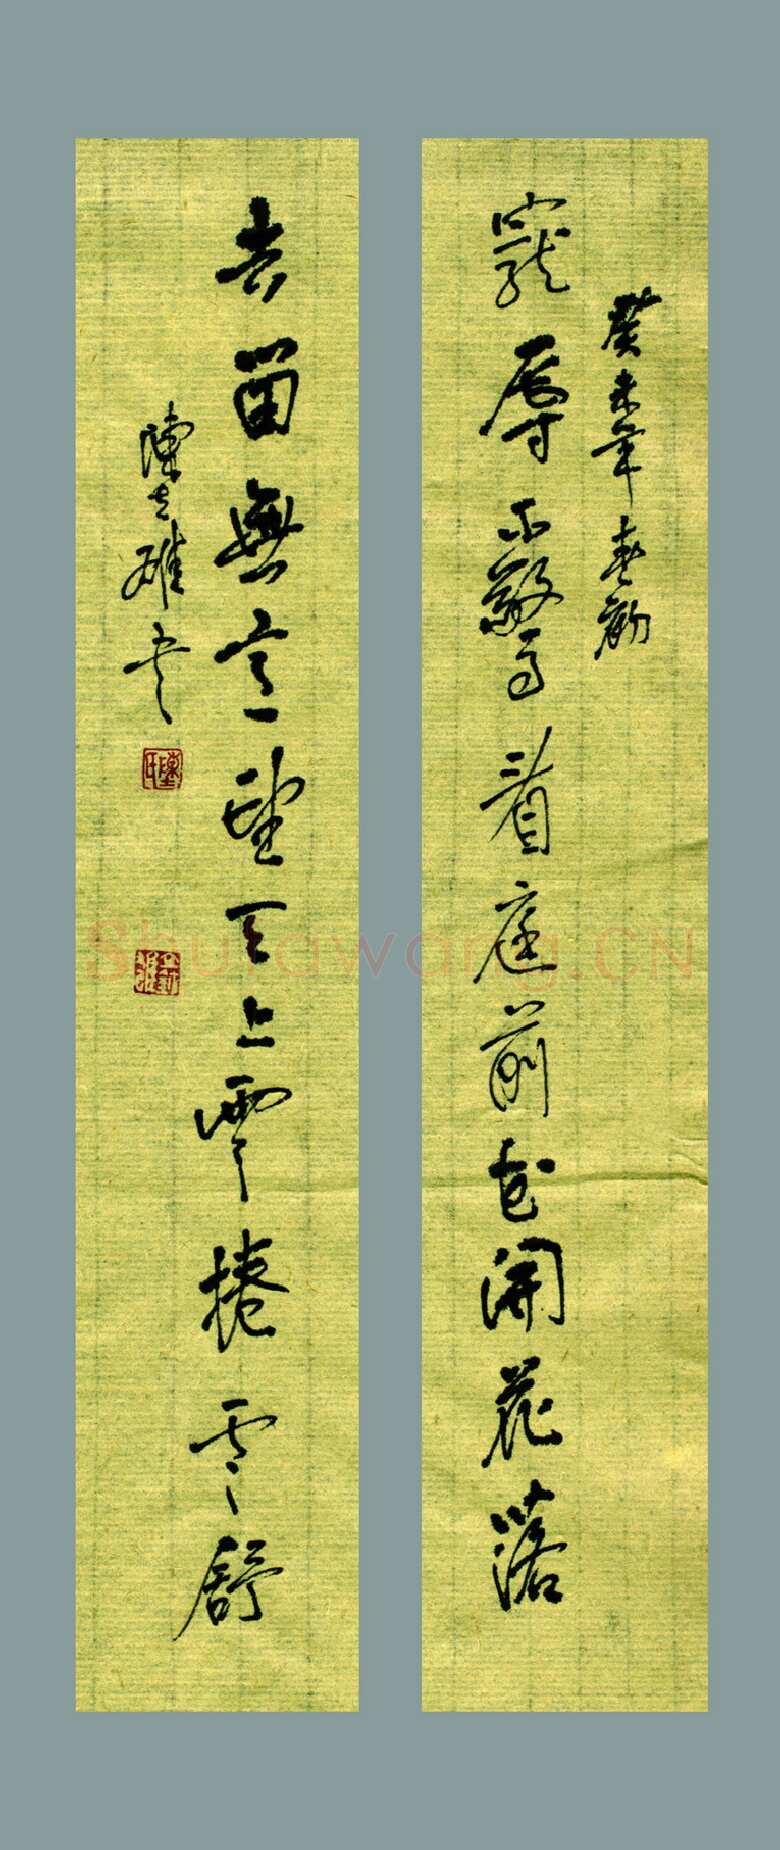 癸未年春
寵辱不驚看庭前花開花落
去留無意望天上雲捲雲舒
陳志雄書
Shufawang.CN